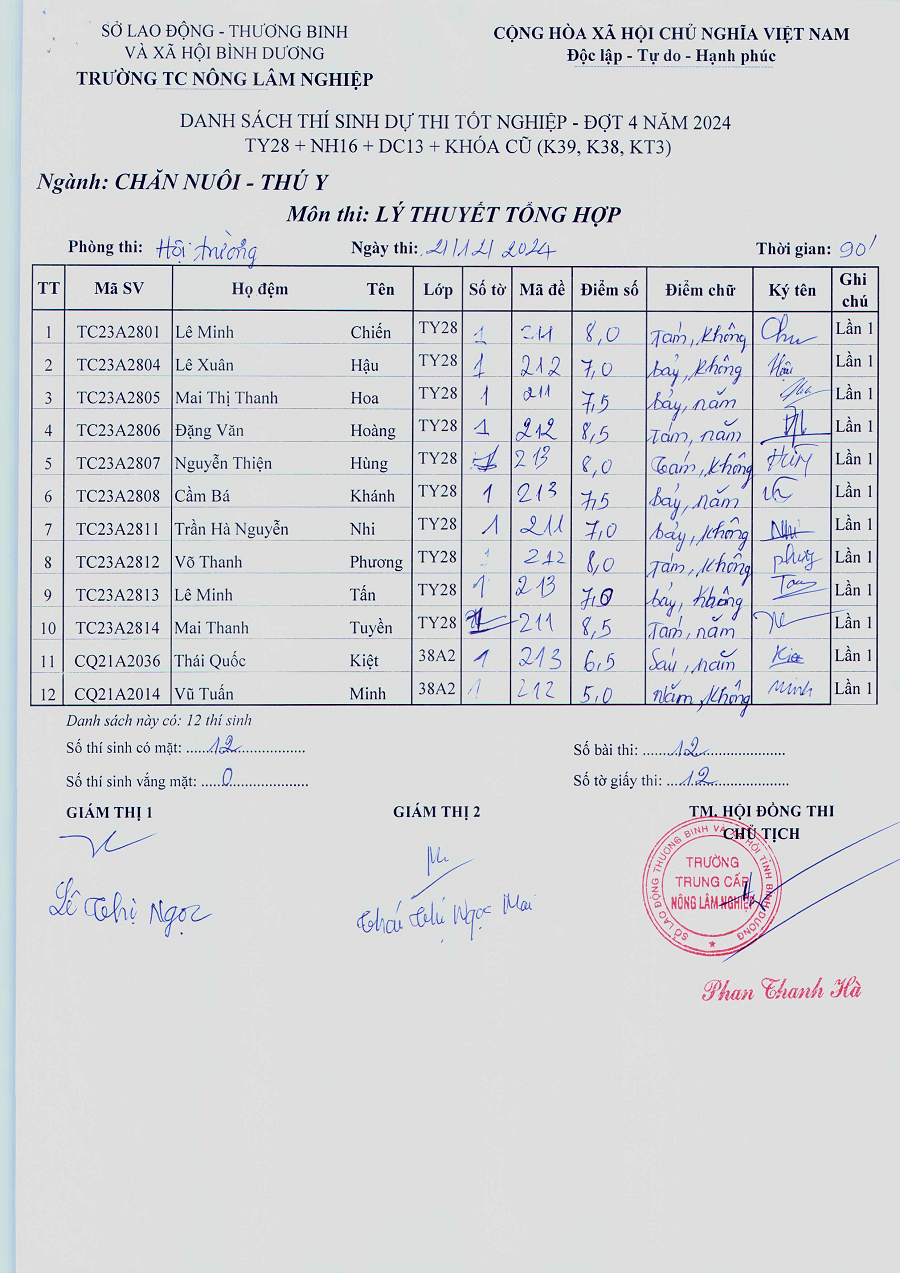 SỞ LAO ĐỘNG - THƯƠNG BINH
VÀ XÃ HỘI BÌNH DƯƠNG
TRƯỜNG TC NÔNG LÂM NGHIỆP
CỘNG HÒA XÃ HỘI CHỦ NGHĨA VIỆT NAM
Độc lập - Tự do - Hạnh phúc
DANH SÁCH THÍ SINH DỰ THI TỐT NGHIỆP - ĐỢT 4 NĂM 2024
TY28 + NH16 + DC13 + KHÓA CŨ (K39, K38, KT3)
Ngành: CHĂN NUÔI - THÚ Y
Môn thi: LÝ THUYẾT TỔNG HỢP
Phòng thi: Hội trường Ngày thi: 21/12/2024 Thời gian: 90'
TT Mã SV Họ đệm Tên Lớp Số tờ Mã đề Điểm số Điểm chữ Ký tên Ghi chú
1 TC23A2801 Lê Minh Chiến TY28 1 211 8,0 Tám, không Lần 1
2 TC23A2804 Lê Xuân Hậu TY28 1 212 7,0 bảy, không Hậu Lần 1
3 TC23A2805 Mai Thị Thanh Hoa TY28 1 211 7,5 bảy, năm Hoa Lần 1
4 TC23A2806 Đặng Văn Hoàng TY28 1 212 8,5 Tám, năm Lần 1
5 TC23A2807 Nguyễn Thiện Hùng TY28 1 213 8,0 Tám, không Hùng Lần 1
6 TC23A2808 Cầm Bá Khánh TY28 1 213 7,5 bảy, năm Lần 1
7 TC23A2811 Trần Hà Nguyễn Nhi TY28 1 211 7,0 bảy, không Nhi Lần 1
8 TC23A2812 Võ Thanh Phương TY28 1 212 8,0 Tám, không phương Lần 1
9 TC23A2813 Lê Minh Tấn TY28 1 213 7,0 bảy, không Lần 1
10 TC23A2814 Mai Thanh Tuyền TY28 1 211 8,5 Tám, năm Lần 1
11 CQ21A2036 Thái Quốc Kiệt 38A2 1 213 6,5 Sáu, năm Kiệt Lần 1
12 CQ21A2014 Vũ Tuấn Minh 38A2 1 212 5,0 năm, không Minh Lần 1
Danh sách này có: 12 thí sinh
Số thí sinh có mặt: 12 Số bài thi: 12
Số thí sinh vắng mặt: 0 Số tờ giấy thi: 12
GIÁM THỊ 1 GIÁM THỊ 2 TM. HỘI ĐỒNG THI
CHỦ TỊCH
SỞ LAO ĐỘNG THƯƠNG BINH VÀ XÃ HỘI TỈNH BÌNH DƯƠNG
TRƯỜNG
TRUNG CẤP
NÔNG LÂM NGHIỆP
Lê Thị Ngọc Thái Thị Ngọc Mai
Phan Thanh Hà